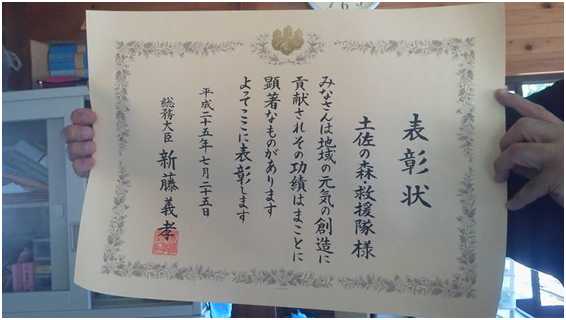 表彰状
土佐の森・救援隊 様
みなさんは地域の元気の創造に
貢献されその功績はまことに
顕著なものがあります
よってここに表彰します
平成二十五年七月二十五日
総務大臣 新藤義孝